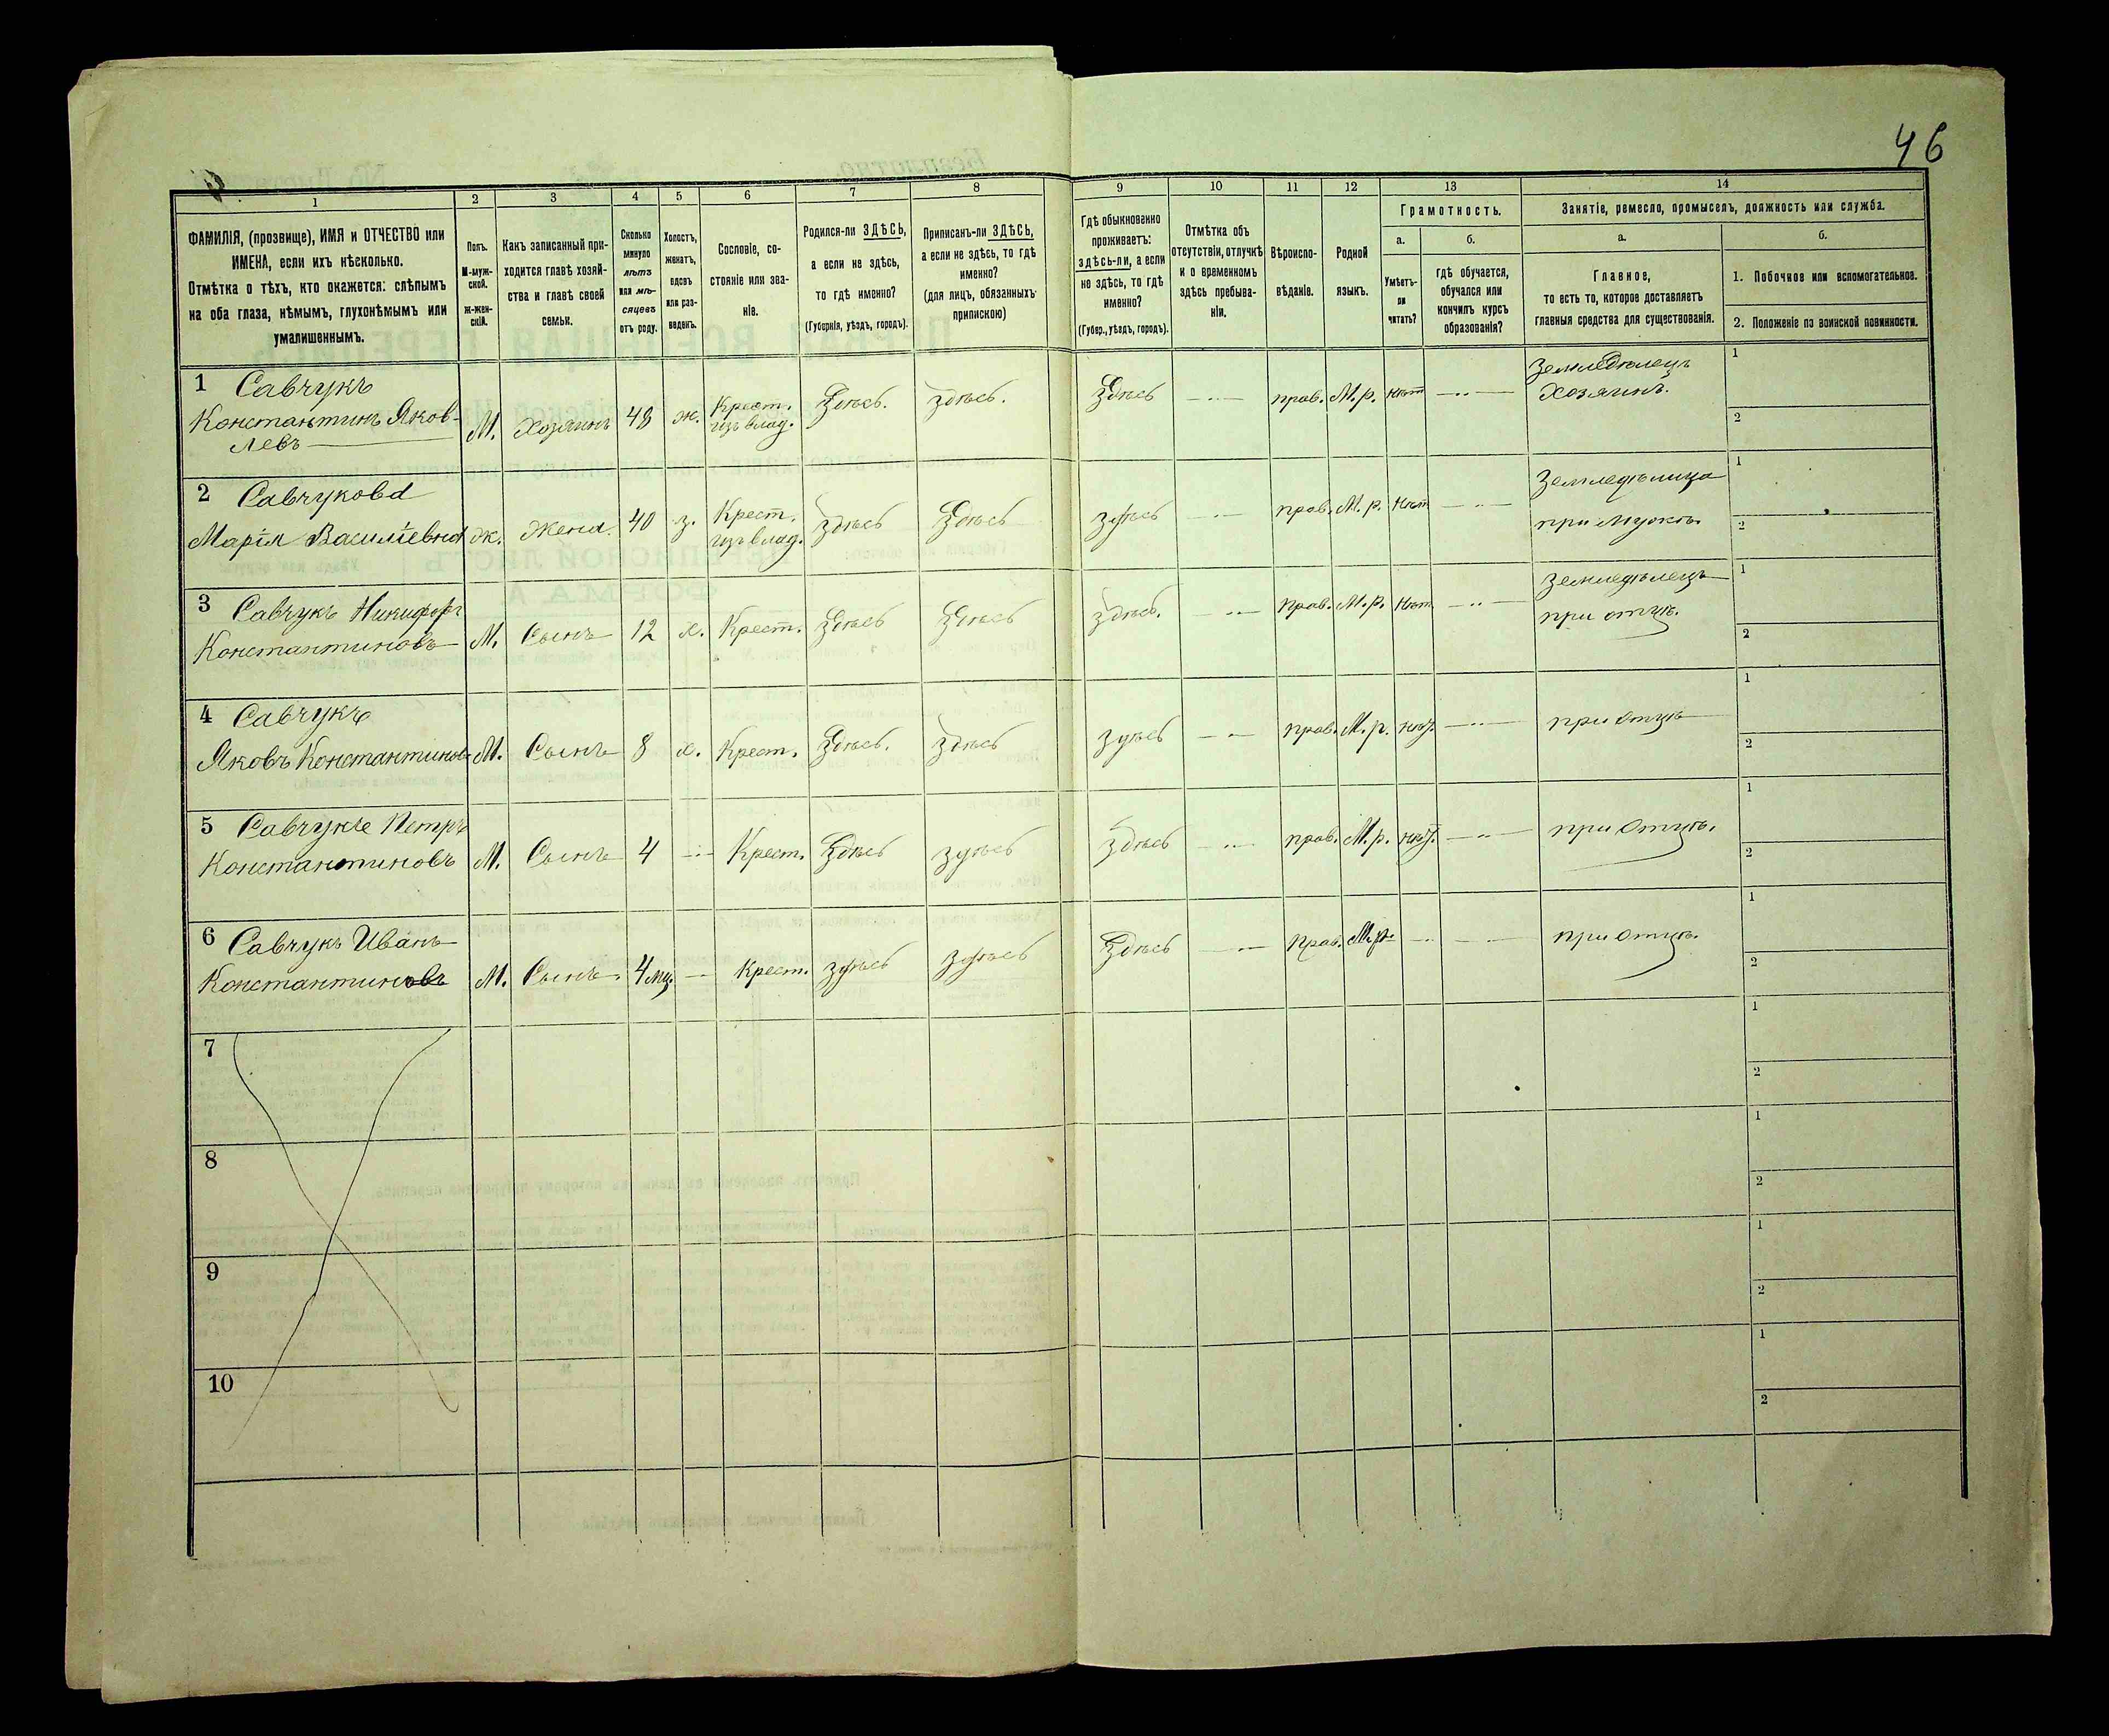 46
1
2
3
4
5
6
7
8
9
10
11
12
13
14
ФАМИЛІЯ, (прозвище), ИМЯ и ОТЧЕСТВО или
ИМЕНА, если ихъ нѣсколько.
Отмѣтка о тѣхъ, кто окажется: слѣпымъ
на оба глаза, нѣмымъ, глухонѣмымъ или
умалишеннымъ.
Полъ.
М-муж-
ской.
Ж-жен-
скій.
Какъ записанный при-
ходится главѣ хозяй-
ства и главѣ своей
семьи.
Сколько
минуло
лѣтъ
или мѣ-
сяцевъ
отъ роду.
Холостъ,
женатъ,
вдовъ
или раз-
веденъ.
Сословіе, со-
стояніе или зва-
ніе.
Родился-ли ЗДѢСЬ,
а если не здѣсь,
то гдѣ именно?
(Губернія, уѣздъ, городъ).
Приписанъ-ли ЗДѢСЬ,
а если не здѣсь, то гдѣ
именно?
(для лицъ, обязанныхъ
припискою)
Гдѣ обыкновенно
проживаетъ:
здѣсь-ли, а если
не здѣсь, то гдѣ
именно?
(Губер., уѣздъ, городъ).
Отмѣтка объ
отсутствіи, отлучкѣ
и о временномъ
здѣсь пребыва-
ніи.
Вѣроиспо-
вѣданіе.
Родной
языкъ.
Грамотность.
а.
Умѣетъ-
ли
читать?
б.
гдѣ обучается,
обучался или
кончилъ курсъ
образованія?
Занятіе, ремесло, промыселъ, должность или служба.
а.
Главное,
то есть то, которое доставляетъ
главныя средства для существованія.
б.
1. Побочное или вспомогательное.
2. Положеніе по воинской повинности.
1 Савчукъ
Константинъ Яков-
левъ
М. Хозяинъ 48 ж. Крест. Здѣсь. Здѣсь. Здѣсь — прав. М.р. нѣт — Земледѣлецъ 1
изъ влад. Хозяинъ. 2
2 Савчукова
Марія Василіевна ж. Жена. 40 з. Крест. Здѣсь Здѣсь здѣсь — прав. М.р. нѣт — Земледѣлица 1
изъ влад. при мужѣ. 2
3 Савчукъ Никифоръ
Константиновъ М. Сынъ 12 х. Крест. Здѣсь Здѣсь здѣсь. — Прав. М.р. Нѣт — Земледѣлецъ 1
при отцѣ. 2
4 Савчукъ
Яковъ Константиновъ М. Сынъ 8 х. Крест. Здѣсь. Здѣсь здѣсь — прав. М.р. нѣт. — при отцѣ 1
2
5 Савчукъ Петръ
Константиновъ М. Сынъ 4 — Крест. Здѣсь здѣсь Здѣсь — прав. М.р. нѣт. — при Отцѣ. 1
2
6 Савчукъ Иванъ
Константиновъ М. Сынъ. 4 мц. — Крест. здѣсь здѣсь Здѣсь — Прав. М.р. — — при Отцѣ. 1
2
7 1
2
8 1
2
9 1
2
10 1
2